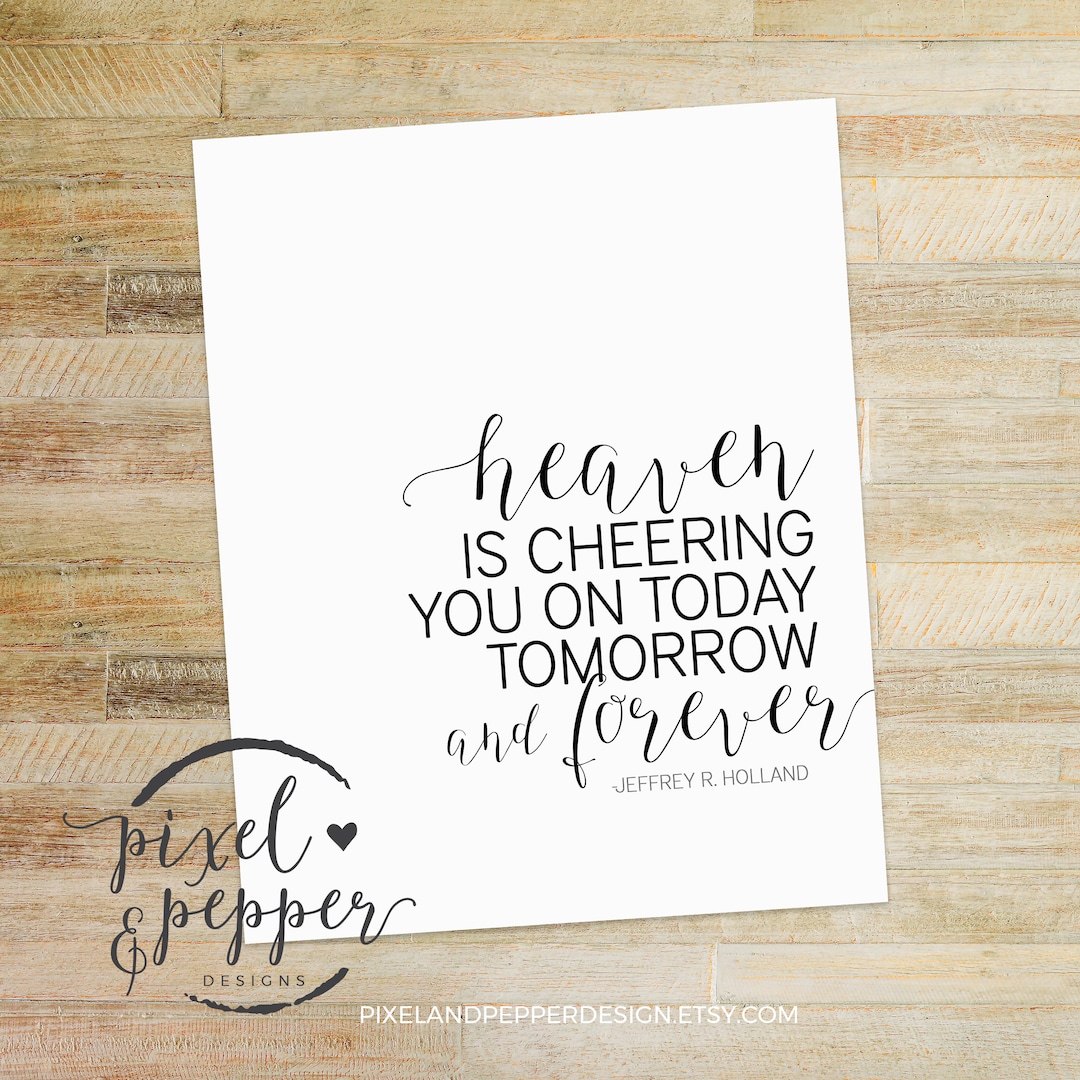 heaven
IS CHEERING
YOU ON TODAY
TOMORROW
and forever
-JEFFREY R. HOLLAND
pixel
& pepper
DESIGNS
PIXELANDPEPPERDESIGN.ETSY.COM